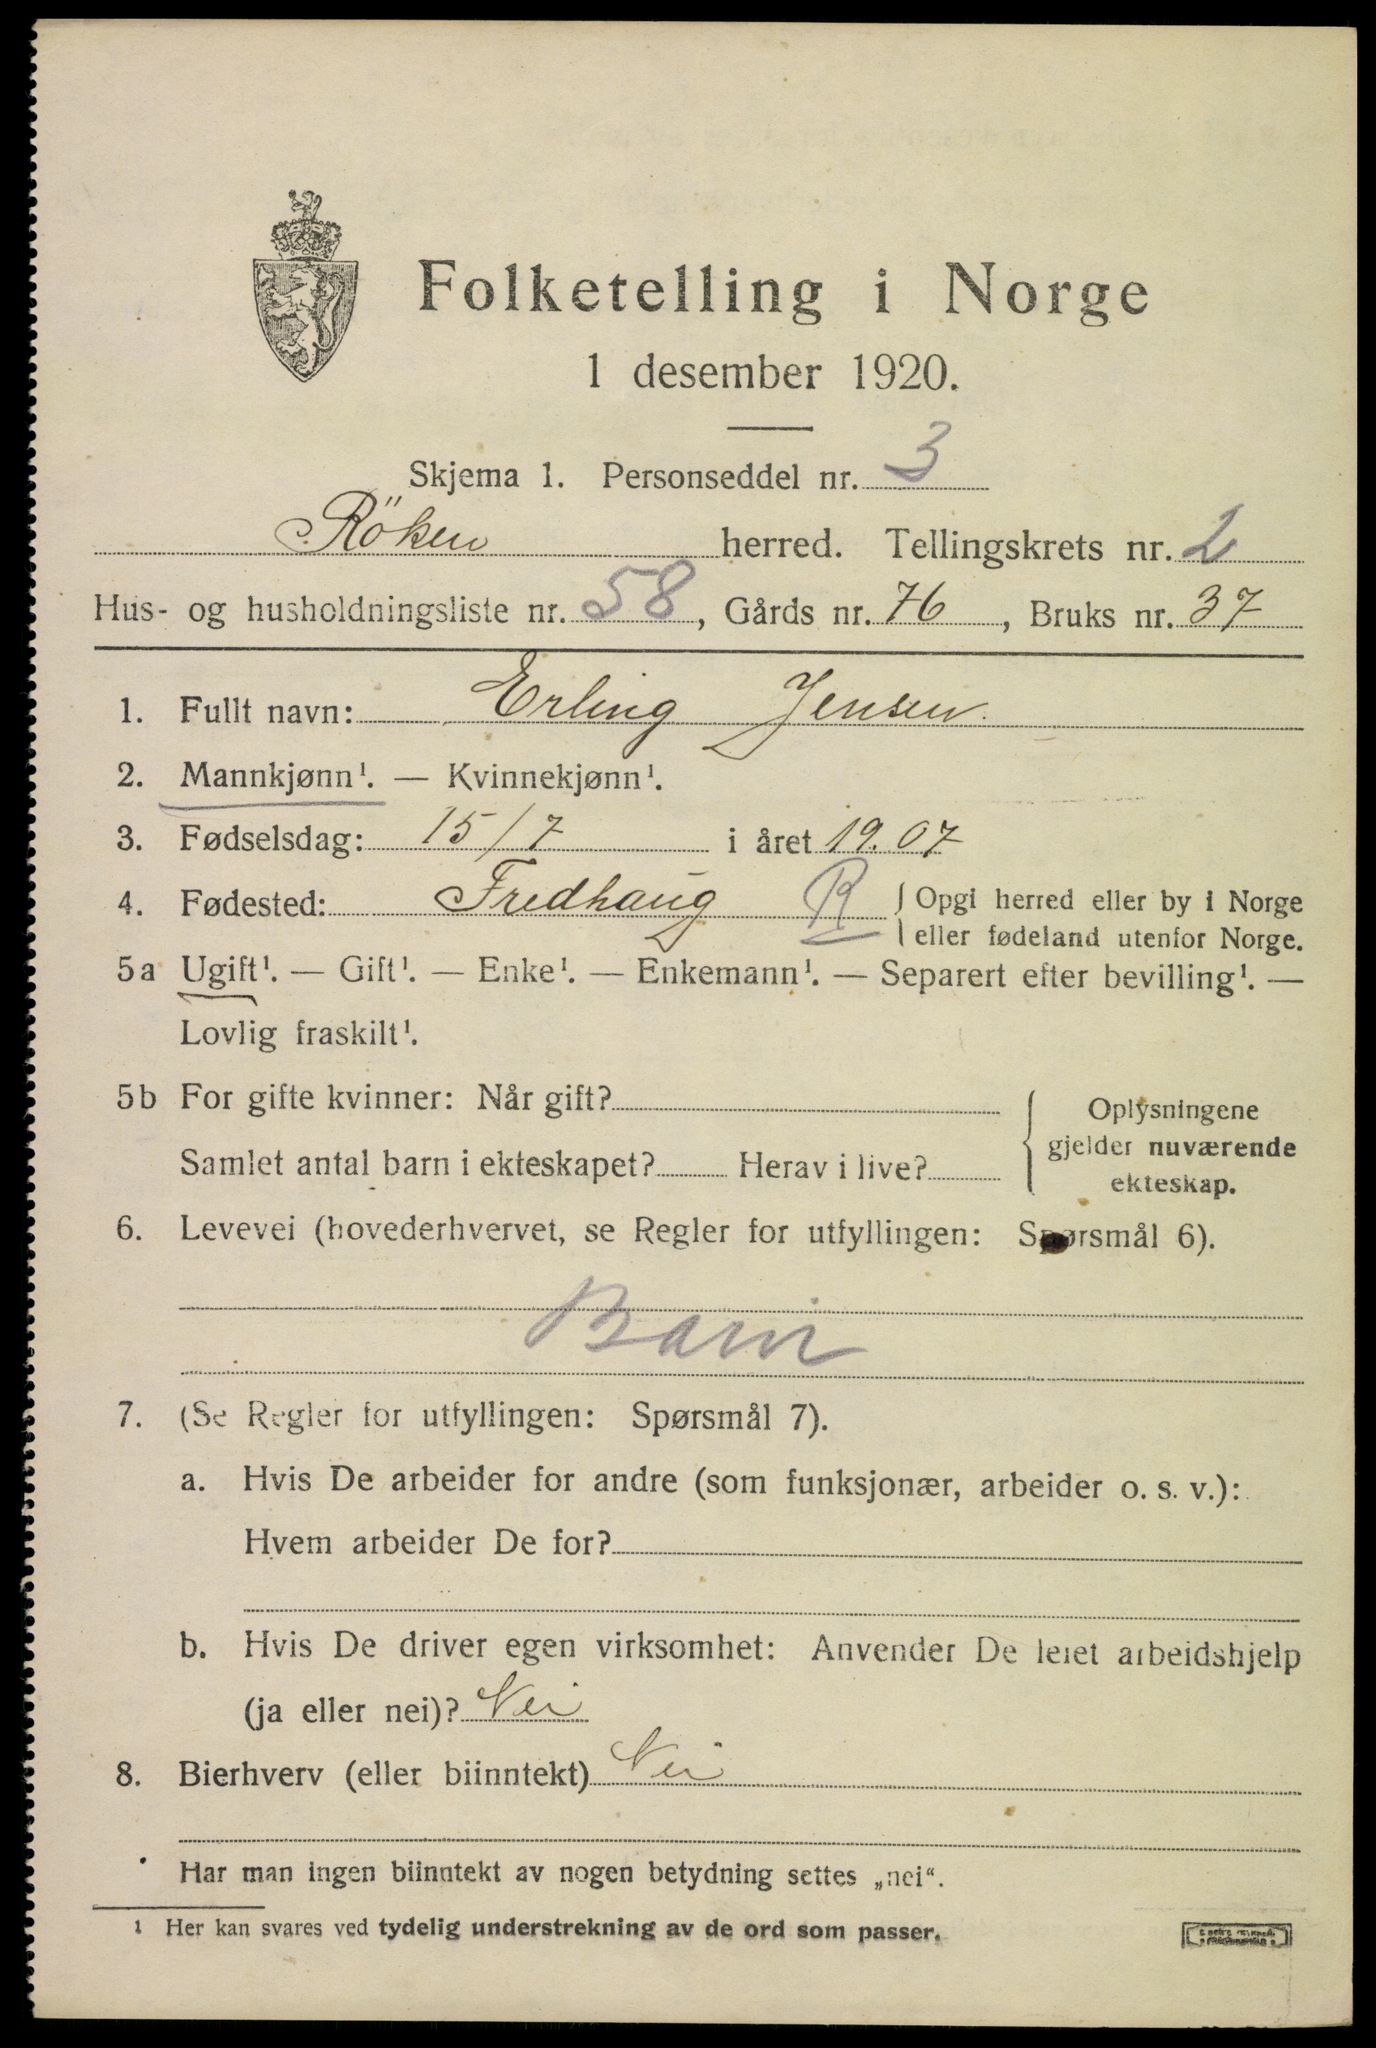 Folketelling i Norge
1 desember 1920.
Skjema 1. Personseddel nr. 3
Röken herred. Tellingskrets nr. 2
Hus- og husholdningsliste nr. 58, Gårds nr. 76, Bruks nr. 37
1. Fullt navn: Erling Jensen.
2. Mannkjønn¹. — Kvinnekjønn¹.
3. Fødselsdag: 15/7 i året 19.07
4. Fødested: Fredhaug R { Opgi herred eller by i Norge
eller fødeland utenfor Norge.
5a Ugift¹. — Gift¹. — Enke¹. — Enkemann¹. — Separert efter bevilling¹. —
Lovlig fraskilt¹.
5b For gifte kvinner: Når gift?
Samlet antal barn i ekteskapet? Herav i live?
Oplysningene
gjelder nuværende
ekteskap.
6. Levevei (hovederhvervet, se Regler for utfyllingen: Spørsmål 6).
Barn
7. (Se Regler for utfyllingen: Spørsmål 7).
a. Hvis De arbeider for andre (som funksjonær, arbeider o. s. v.):
Hvem arbeider De for?
b. Hvis De driver egen virksomhet: Anvender De leiet arbeidshjelp
(ja eller nei)? Nei
8. Bierhverv (eller biinntekt) Nei
Har man ingen biinntekt av nogen betydning settes „nei“.
1 Her kan svares ved tydelig understrekning av de ord som passer.